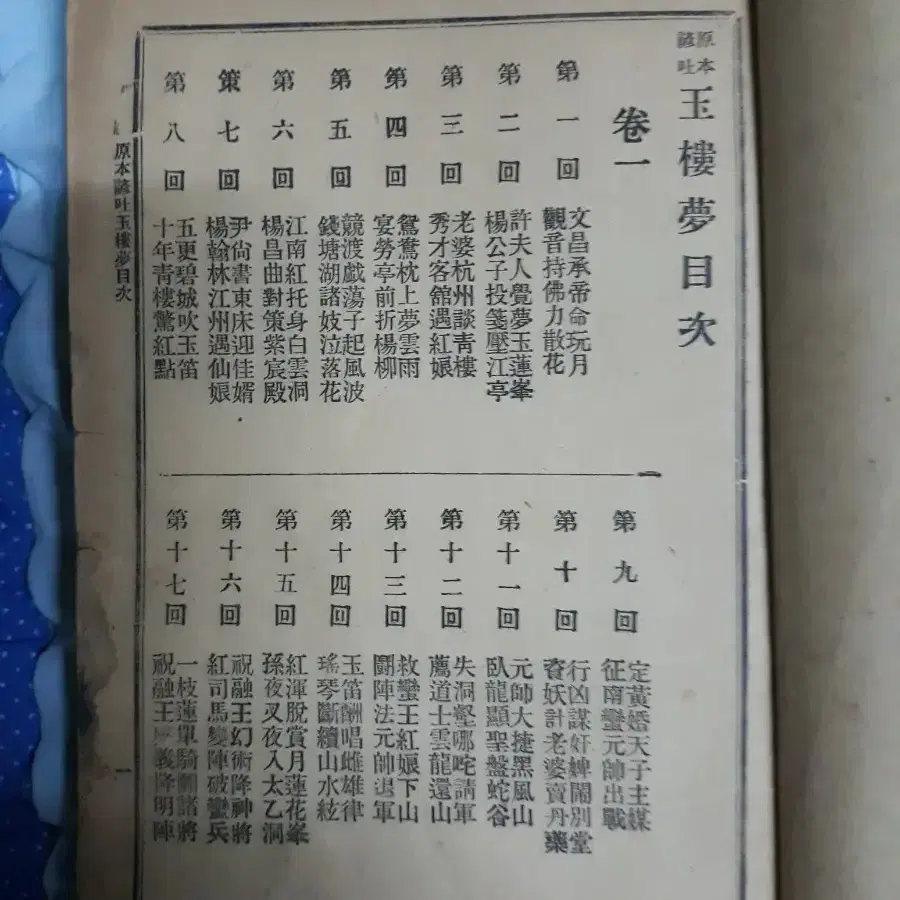 原本
諺吐
玉樓夢目次
卷一
第一回
文昌承帝命玩月
觀音持佛力散花
第二回
許夫人覺夢玉蓮峯
楊公子投箋壓江亭
第三回
老婆杭州談靑樓
秀才客館遇紅娘
第四回
鴛鴦枕上夢雲雨
宴勞亭前折楊柳
第五回
競渡戱蕩子起風波
錢塘湖諸妓泣落花
第六回
江南紅托身白雲洞
楊昌曲對策紫宸殿
第七回
尹尙書東床迎佳婿
楊翰林江州遇仙娘
第八回
五更碧城吹玉笛
十年靑樓驚紅點
第九回
定黃婚天子主媒
征南蠻元帥出戰
第十回
行凶謀奸婢鬧別堂
資妖計老婆賣丹藥
第十一回
元師大捷黑風山
臥龍顯聖盤蛇谷
第十二回
失洞壑哪咤請軍
薦道士雲龍還山
第十三回
救蠻王紅娘下山
鬪陣法元帥退軍
第十四回
玉笛酬唱雌雄律
瑤琴斷續山水絃
第十五回
紅渾脫賞月蓮花峯
孫夜叉夜入太乙洞
第十六回
祝融王幻術降神將
紅司馬變陣破蠻兵
第十七回
一枝蓮單騎劚諸將
祝融王 義降明陣
原本諺吐玉樓夢目次
一